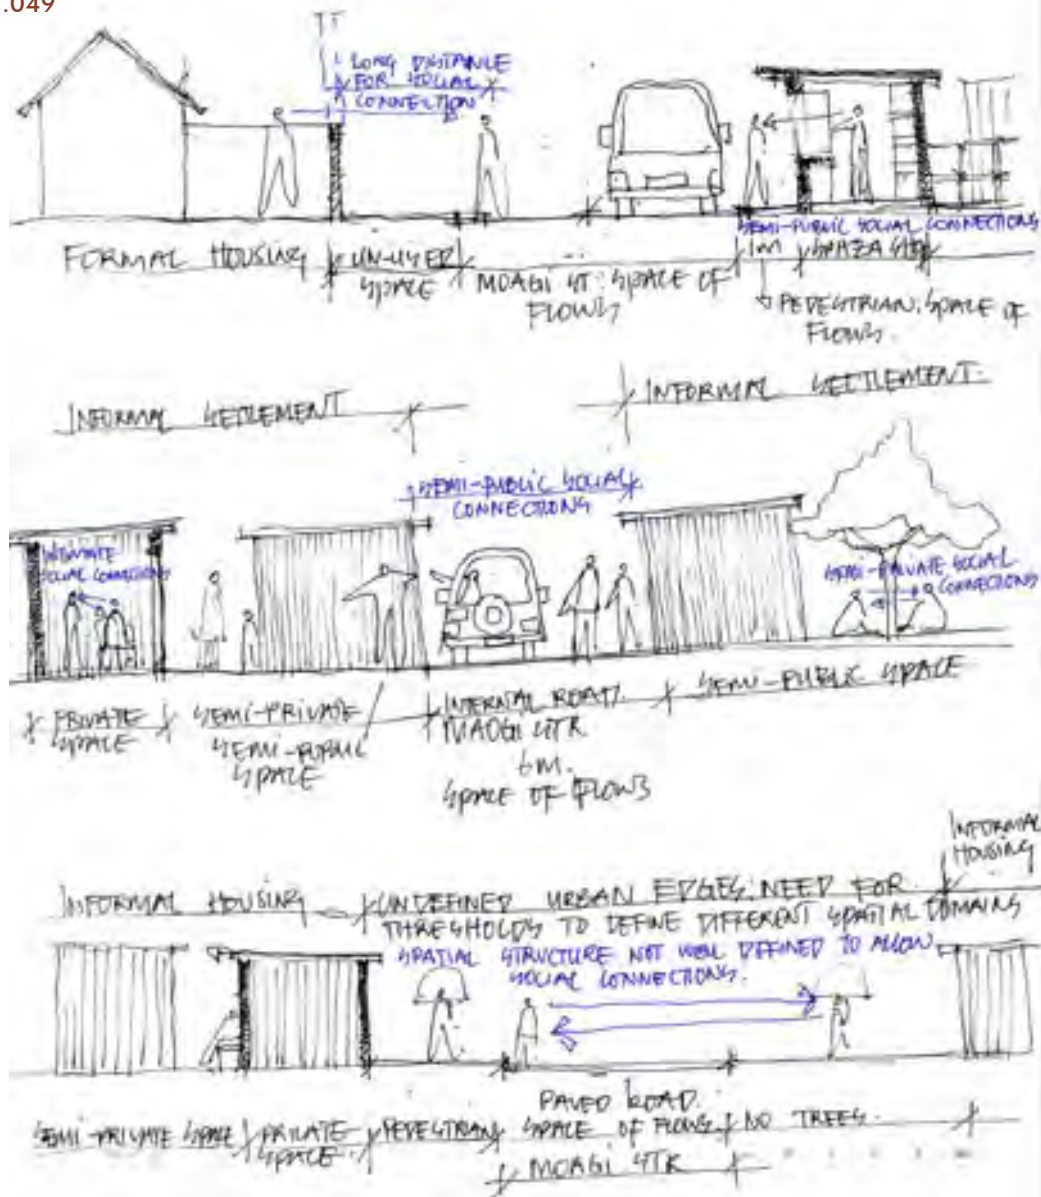 .049
LONG DISTANCE
FOR SOCIAL
CONNECTION
SEMI-PUBLIC SOCIAL CONNECTIONS
FORMAL HOUSING
UN-USED
SPACE
MOAGI ST: SPACE OF
FLOWS
1M
SPAZA
PEDESTRIAN: SPACE OF
FLOWS.
INFORMAL SETTLEMENT
INFORMAL SETTLEMENT.
SEMI-PUBLIC SOCIAL
CONNECTIONS
INTIMATE
SOCIAL CONNECTIONS
SEMI-PRIVATE SOCIAL
CONNECTIONS
PRIVATE
SPACE
SEMI-PRIVATE/
SEMI-PUBLIC
SPACE
INTERNAL ROAD.
MAOGI STR
6M.
SPACE OF FLOWS
SEMI-PUBLIC SPACE
INFORMAL
HOUSING
INFORMAL HOUSING
UNDEFINED URBAN EDGES: NEED FOR
THRESHOLDS TO DEFINE DIFFERENT SPATIAL DOMAINS
SPATIAL STRUCTURE NOT WELL DEFINED TO ALLOW
SOCIAL CONNECTIONS.
SEMI-PRIVATE SPACE
PRIVATE
SPACE.
PEDESTRIAN
PAVED ROAD.
SPACE OF FLOWS.
NO TREES.
MOAGI STR